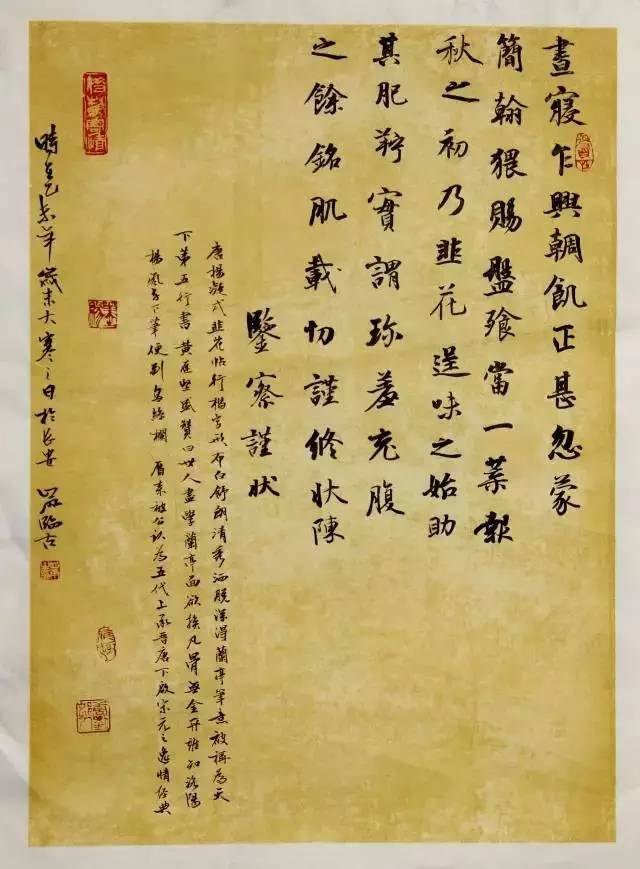 晝寢乍興輖飢正甚忽蒙
簡翰猥賜盤飧當一葉報
秋之初乃韭花逞味之始助
其肥羜實謂珍羞充腹
之餘銘肌載切謹修狀陳
鑒察謹狀
唐楊凝式韭花帖行楷字形布白舒朗清秀洒脫深得蘭亭筆意故稱為天
下第五行書黃庭堅盛贊曰世人盡學蘭亭面欲換凡骨無金丹誰知洛陽
楊風子下筆便到烏絲欄 歷來被公認為五代上承晉唐下啟宋元之逸情經典
時在乙未羊歲末大寒之日於長安 臨古